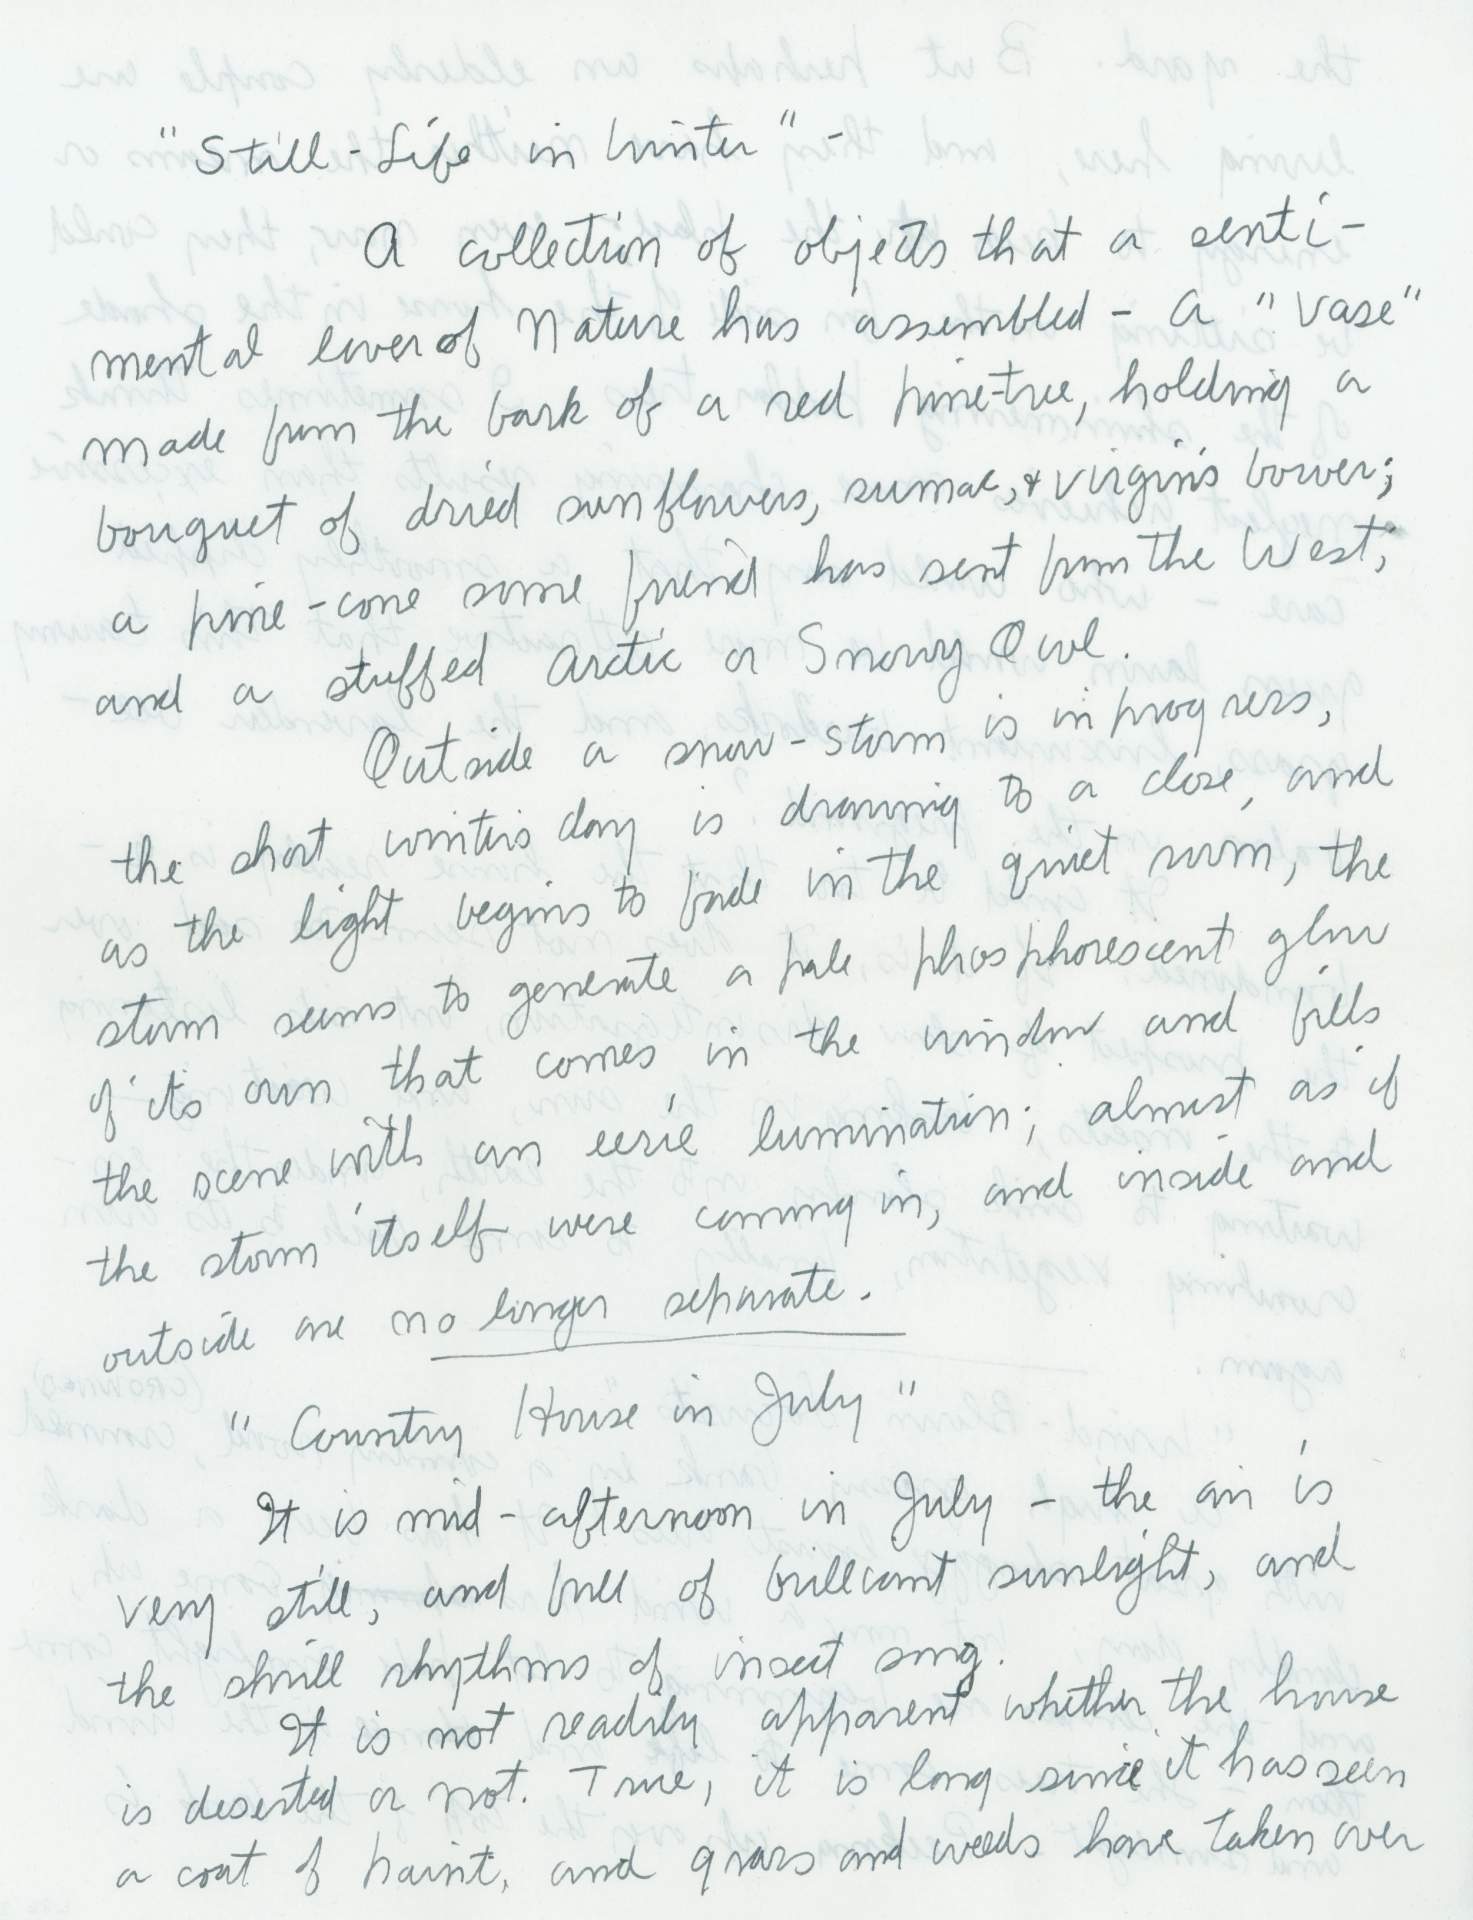 "Still-Life in Winter" -
A collection of objects that a senti-
mental lover of Nature has assembled - a "vase"
made from the bark of a red pine-tree, holding a
bouquet of dried sunflowers, sumac, & virgin's bower;
a pine-cone some friend has sent from the West;
and a stuffed Arctic or Snowy Owl.
Outside a snow-storm is in progress,
the short winter's day is drawing to a close, and
as the light begins to fade in the quiet room, the
storm seems to generate a pale phosphorescent glow
of its own that comes in the window and fills
the scene with an eerie lumination; almost as if
the storm itself were coming in, and inside and
outside are no longer separate.
"Country House in July"
It is mid-afternoon in July - the air is
very still, and full of brilliant sunlight, and
the shrill rhythms of insect song.
It is not readily apparent whether the house
is deserted or not. True, it is long since it has seen
a coat of paint, and grass and weeds have taken over